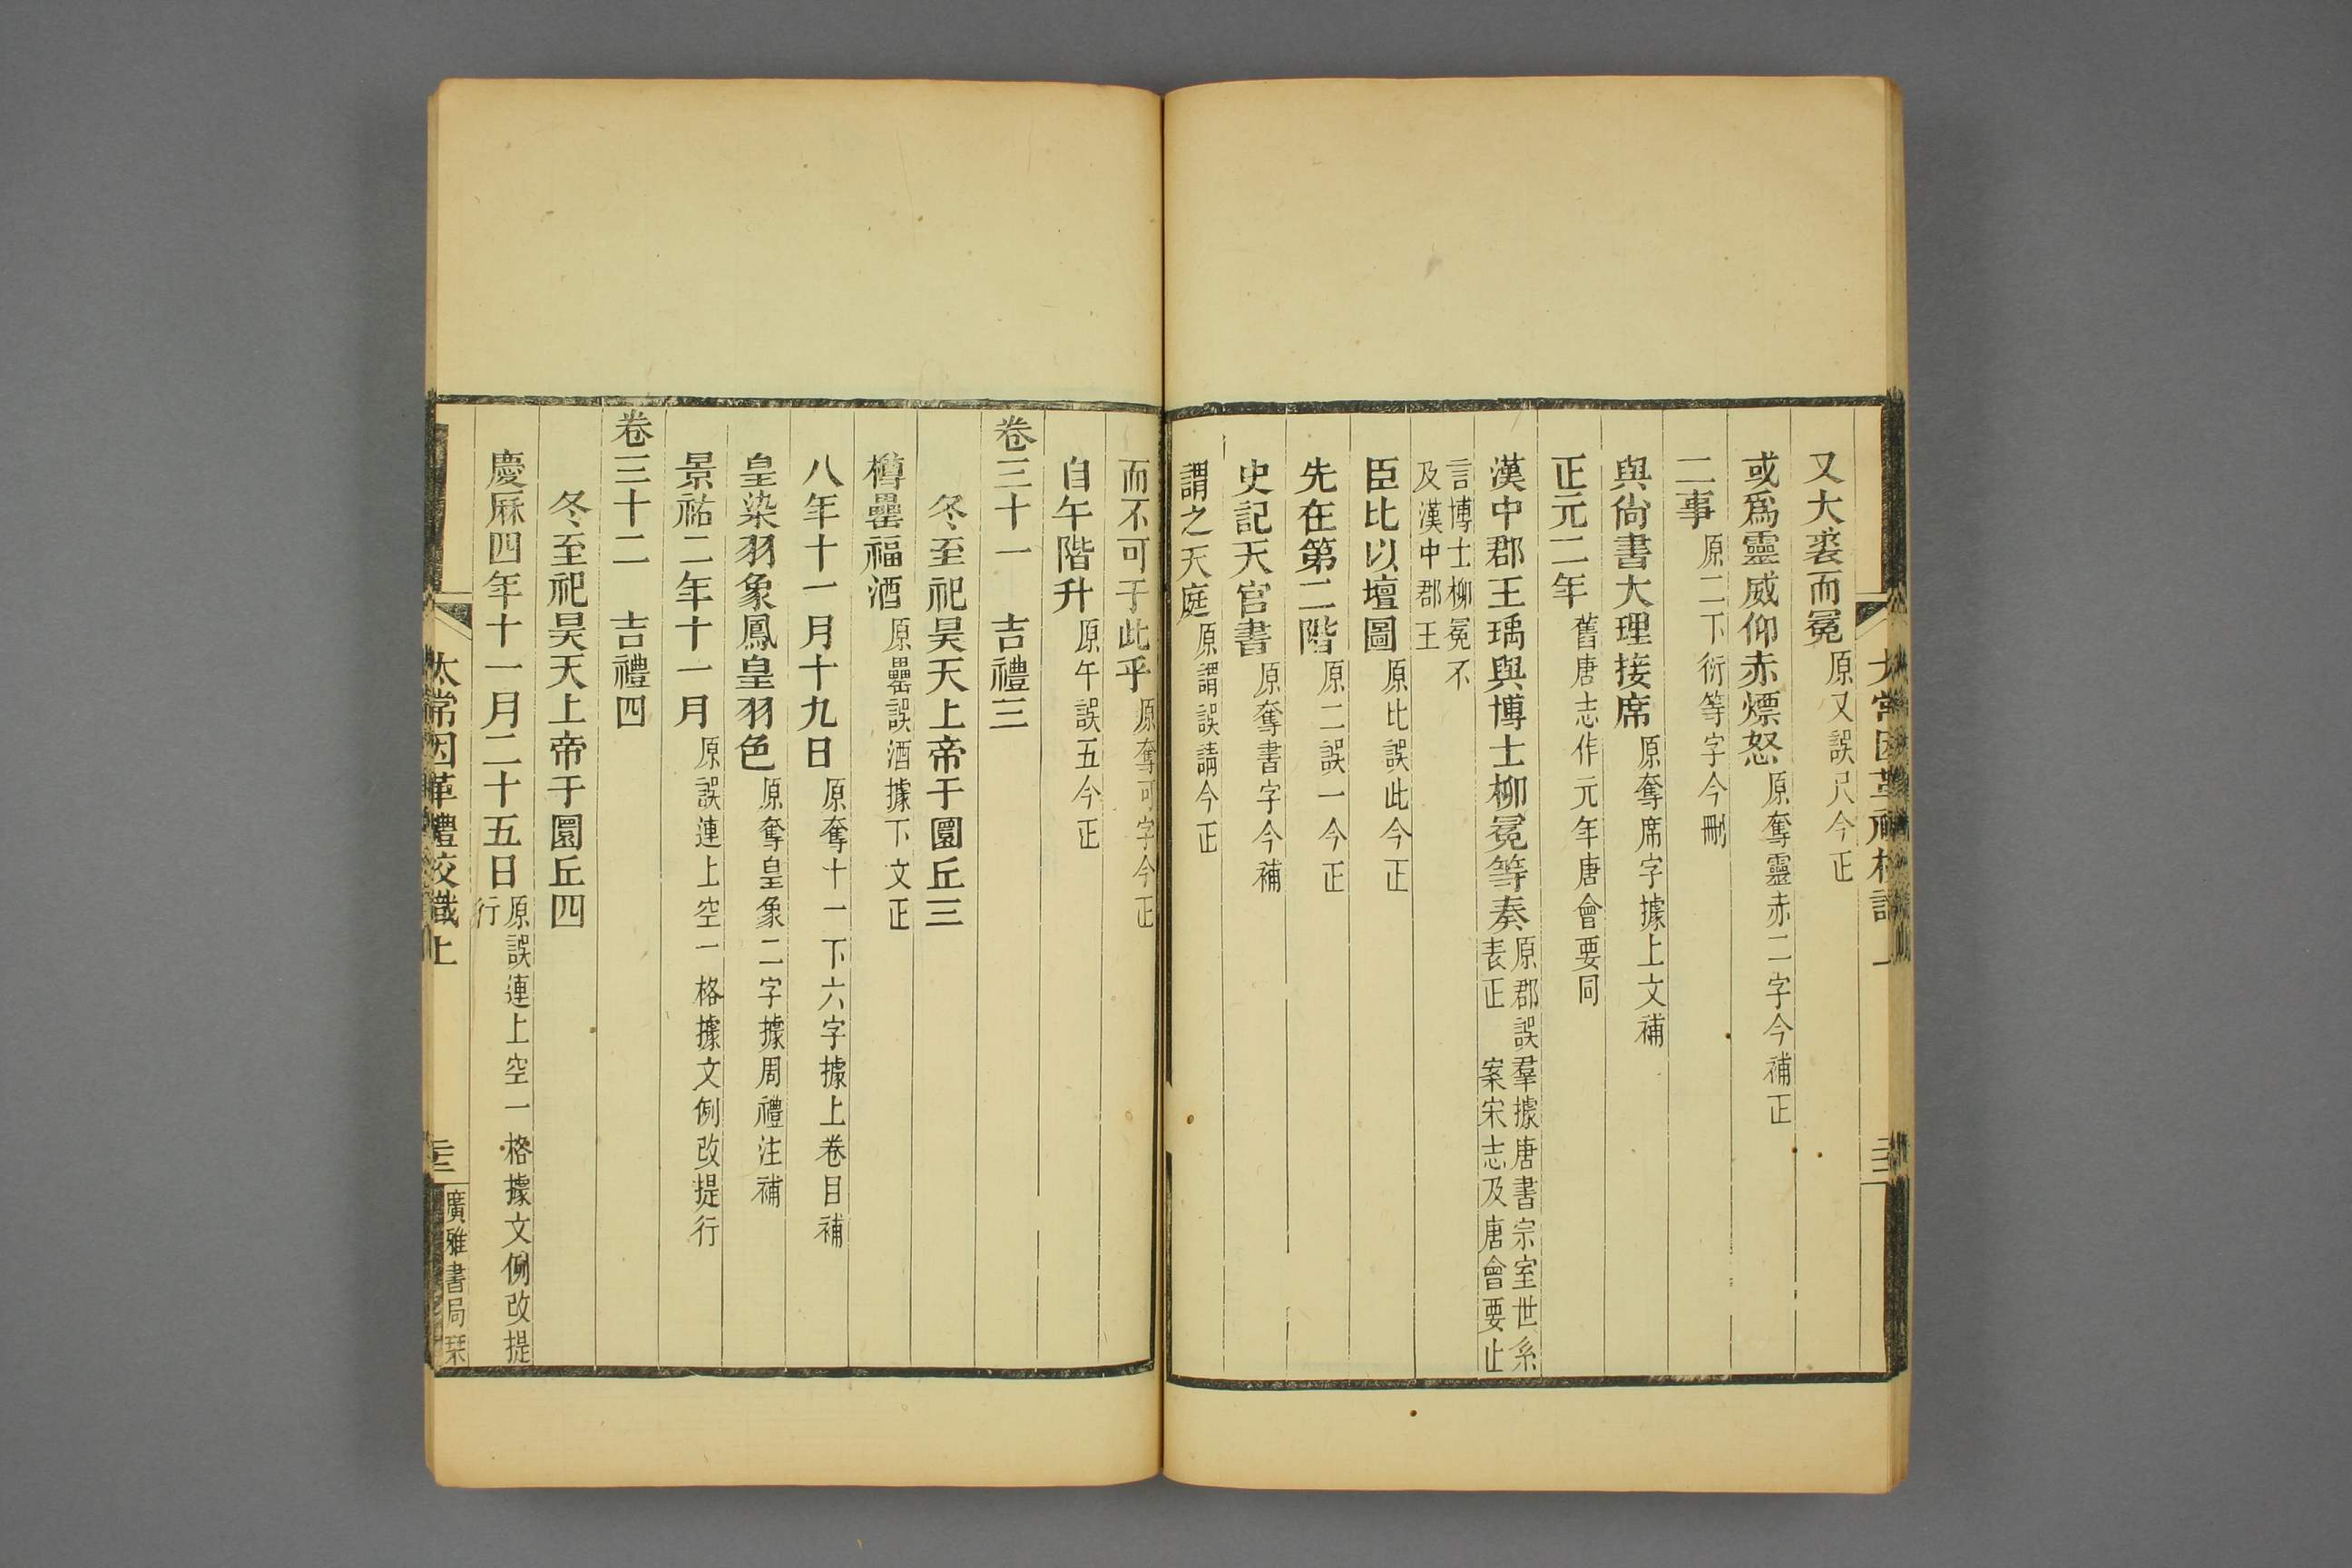 又大裘而冕原又誤尺今正
或爲靈威仰赤熛怒原奪靈赤二字今補正
二事原二下衍等字今刪
與尙書大理接席原奪席字據上文補
正元二年舊唐志作元年唐會要同
漢中郡王瑀與博士柳冕等奏原郡誤羣據唐書宗室世系表正　案宋志及唐會要止
言博士柳冕不及漢中郡王
臣比以壇圖原比誤此今正
先在第二階原二誤一今正
史記天官書原奪書字今補
謂之天庭原謂誤請今正
而不可于此乎原奪可字今正
自午階升原午誤五今正
卷三十一　吉禮三
冬至祀昊天上帝于圜丘三
樽罍福酒原罍誤酒據下文正
八年十一月十九日原奪十一下六字據上卷目補
皇染羽象鳳皇羽色原奪皇象二字據周禮注補
景祐二年十一月原誤連上空一格據文例改提行
卷三十二　吉禮四
冬至祀昊天上帝于圜丘四
慶厤四年十一月二十五日原誤連上空一格據文例改提行
太常因革禮校識上
廣雅書局栞